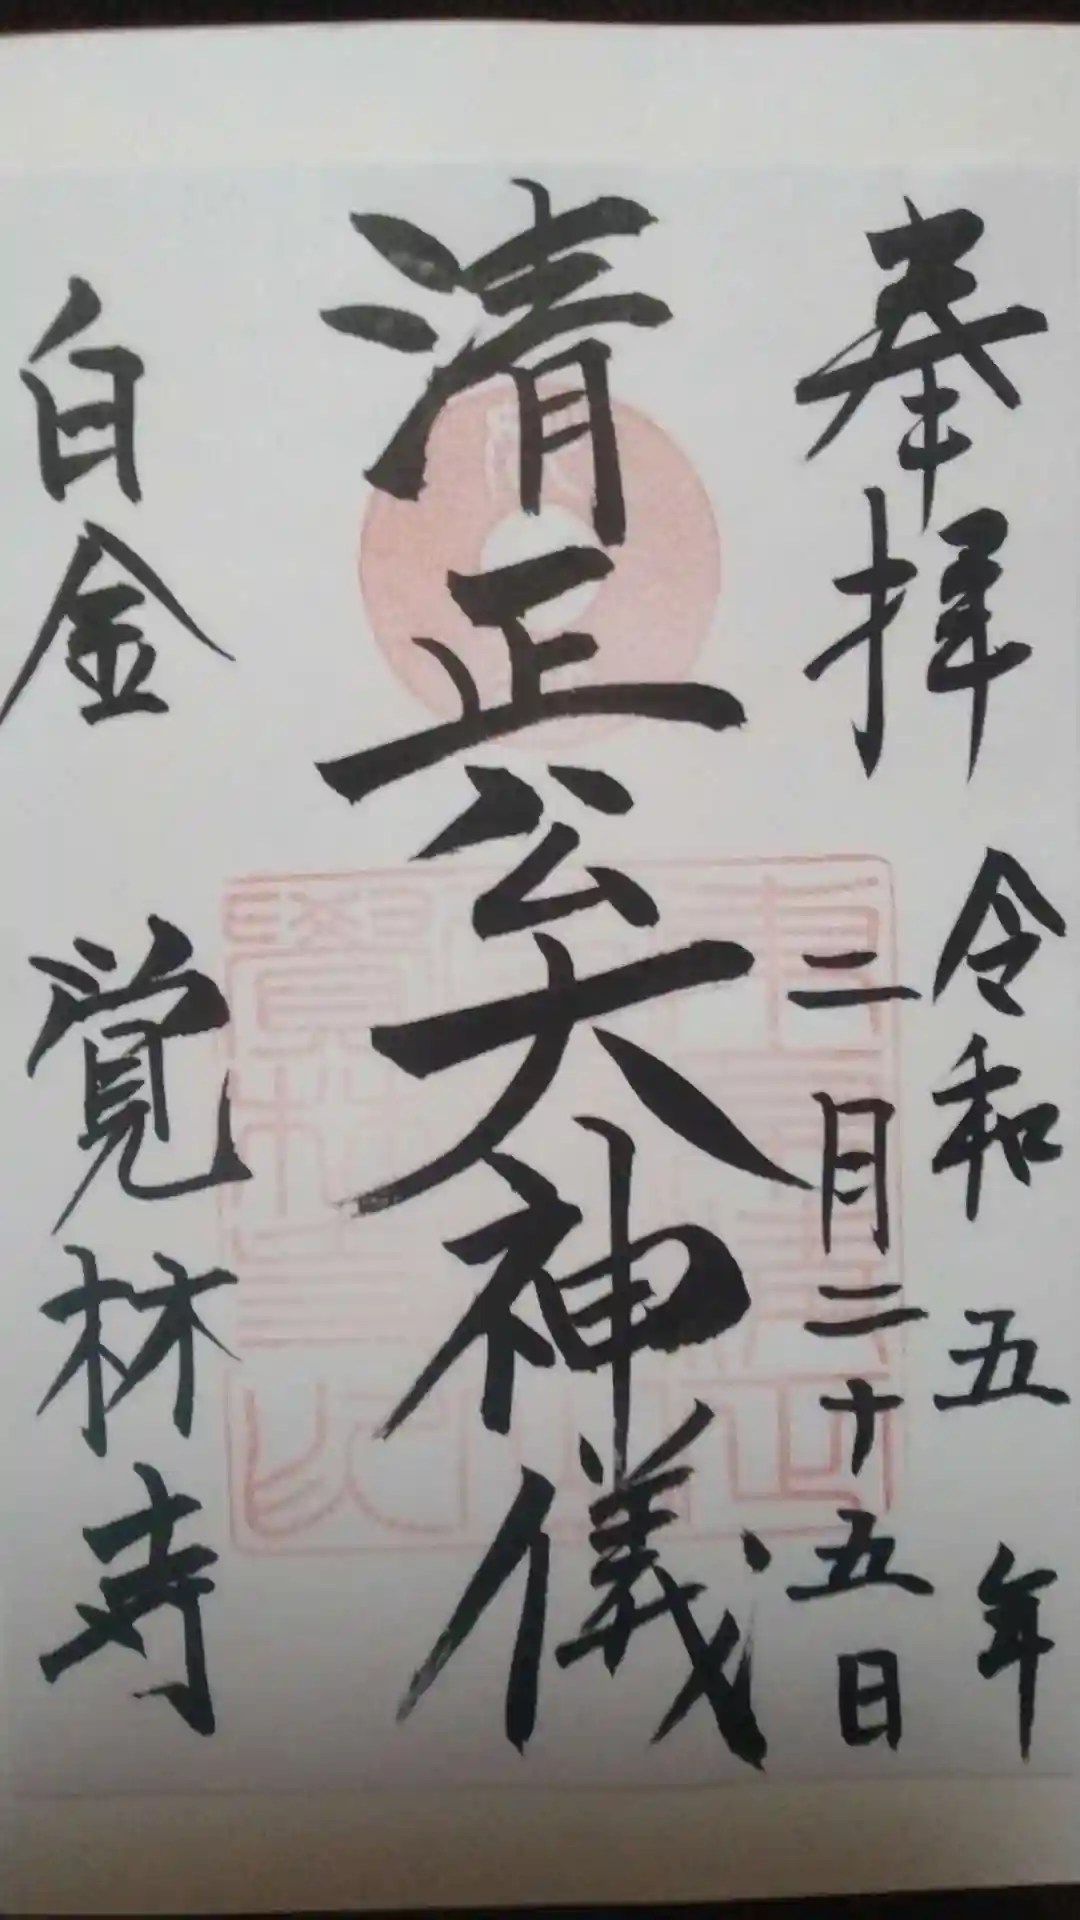 奉拝
令和五年
二月二十五日
清正公大神儀
白金 覚林寺